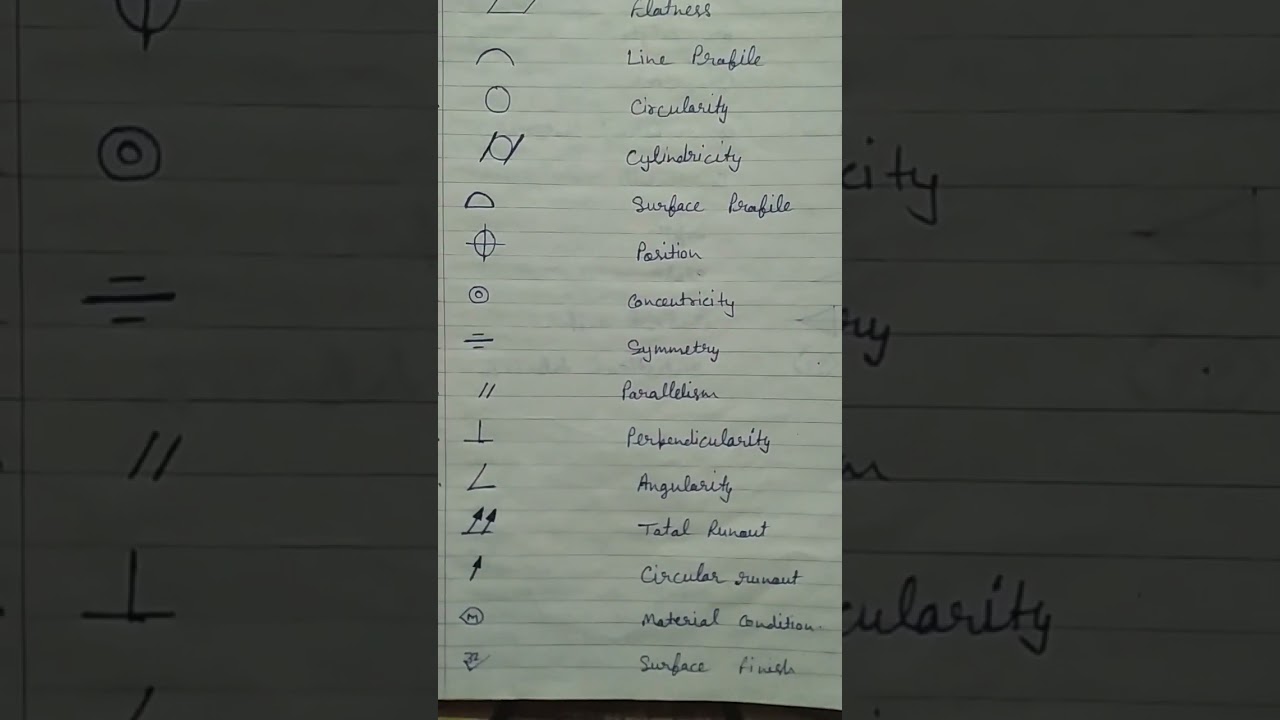 Flatness
Line Profile
Circularity
Cylindricity
Surface Profile
Position
Concentricity
Symmetry
// Parallelism
Perpendicularity
Angularity
Total Runout
Circular runout
M Material Condition.
Surface Finish